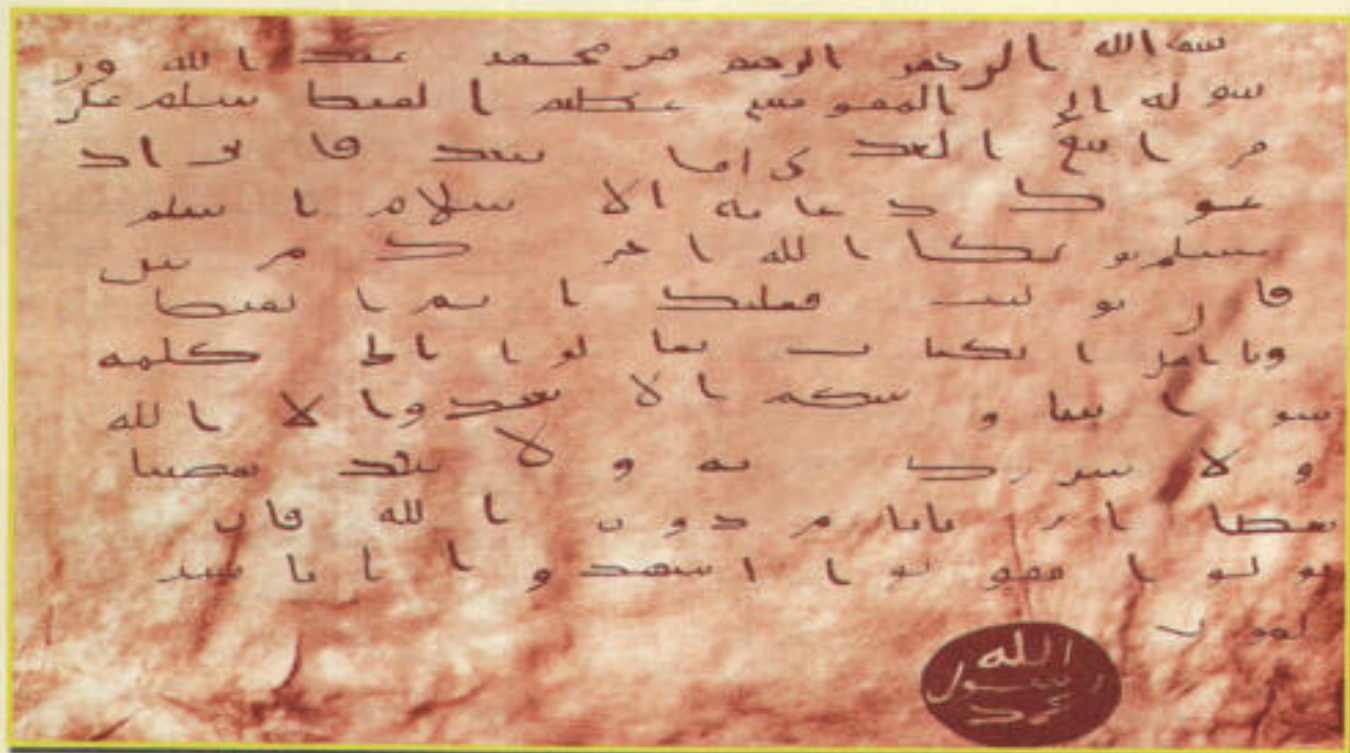 بسم الله الرحمن الرحيم من محمد عبد الله ور
سو له الى المقوقس عظيم ا لقبط سلم على
من ا تبع ا لهد ى اما بعد فا نى اد
عو ك بد عا ية الا سلام ا سلم
تسلم يو تك ا لله ا جر ك مر تين
فا ن تو ليت فعليك ا ثم ا لقبط
ويا اهل ا لكتا ب تعا لو ا ا لى كلمة
سو ا بيننا و بينكم ا لا نعبد ا لا ا لله
و لا نشر ك به و لا يتخذ بعضنا
بعضا ا ر با با من دو ن ا لله فان
تو لو ا فقو لو ا ا شهدو ا با نا مسلمو
ن
الله
رسول
محمد